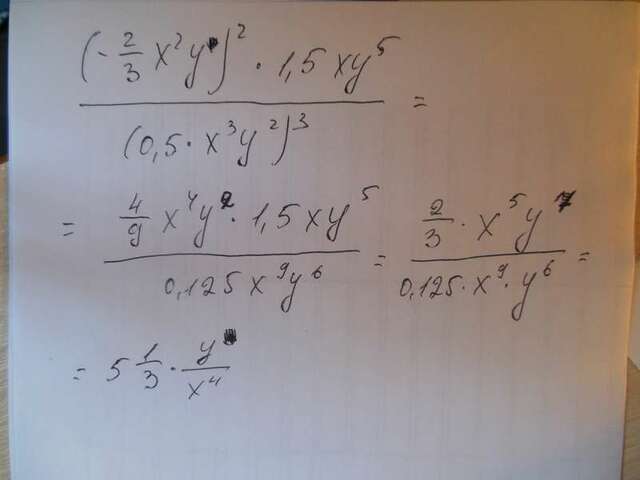 (-2/3 x²y)² · 1,5 xy⁵
/ (0,5 · x³y²)³ =
= 4/9 x⁴y² · 1,5 xy⁵ / 0,125 x⁹y⁶ = 2/3 · x⁵y⁷ / 0,125 · x⁹ · y⁶ =
= 5 1/3 · y/x⁴